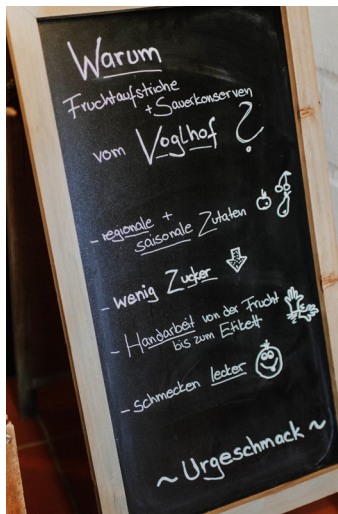 Warum
Fruchtaufstriche
+ Sauerkonserven
vom Voglhof ?
- regionale +
saisonale Zutaten
- wenig Zucker
- Handarbeit von der Frucht
bis zum Etikett
- schmecken lecker
~ Urgeschmack ~